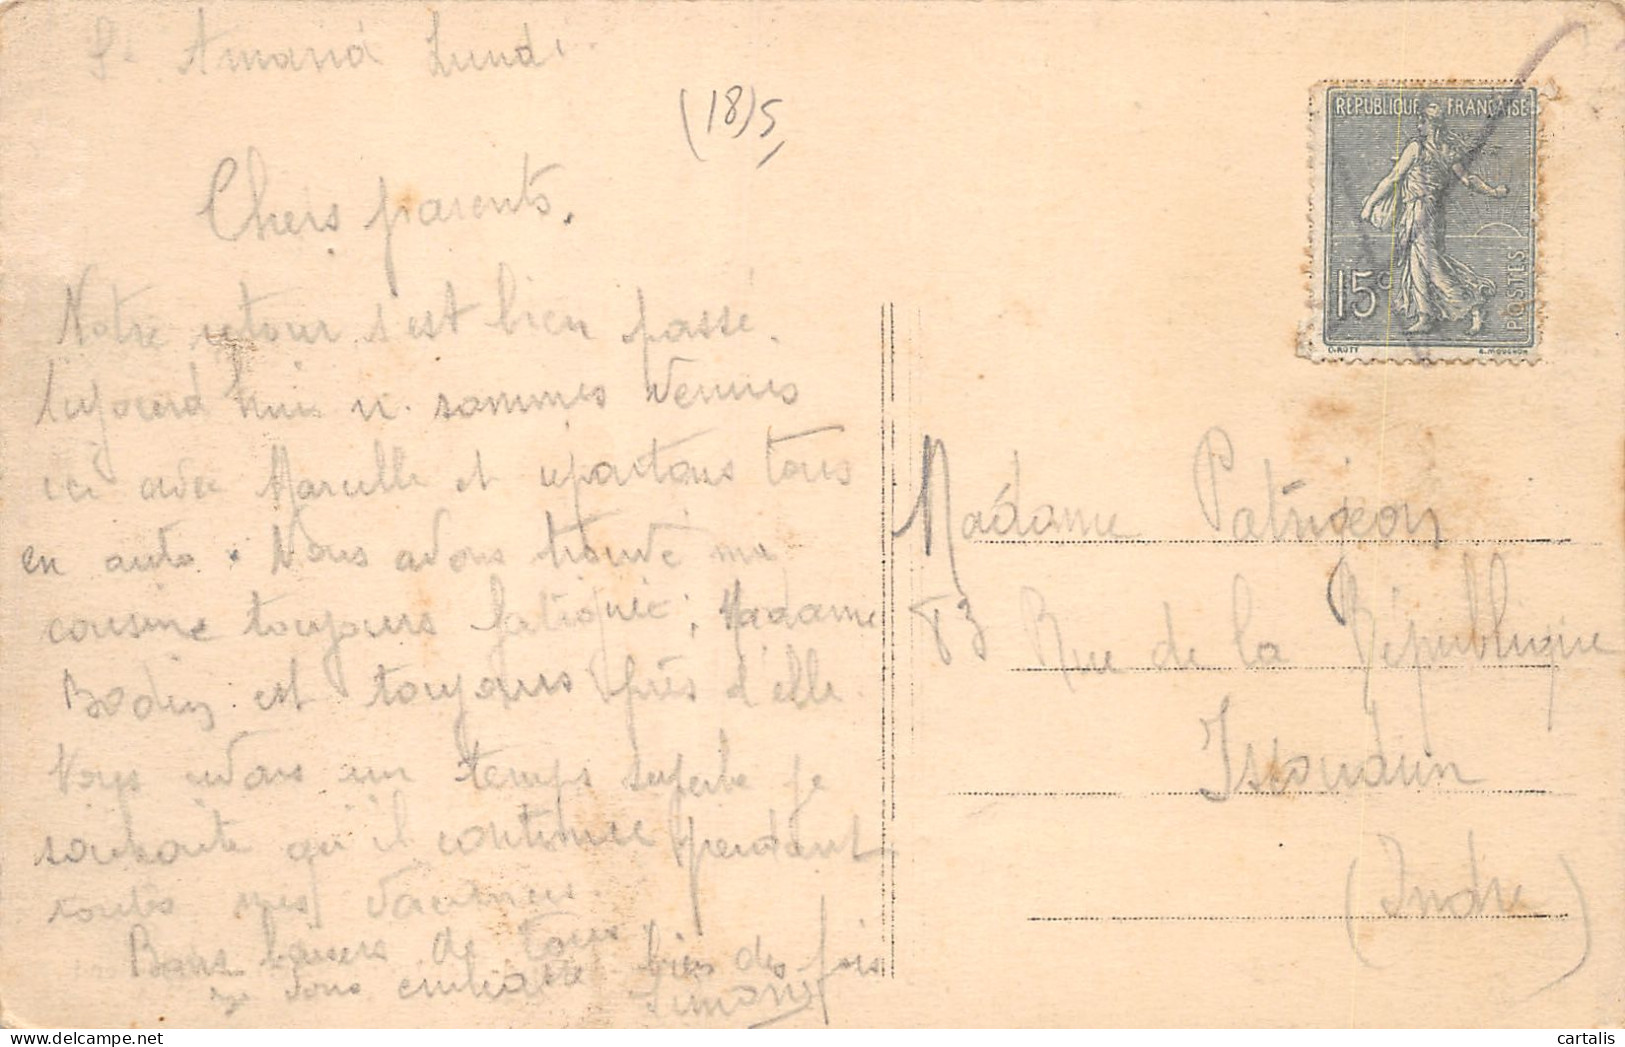 St Amand Lundi.
(18)5
Chers parents,
Notre retour s'est bien passé.
Aujourd'hui n. sommes venues
ici avec Marcelle et repartons tous
en auto. Nous avons trouvé ma
cousine toujours fatiguée, Madame
Bodin est toujours près d'elle.
Nous avons un temps superbe je
souhaite qu'il continue pendant
toutes mes vacances.
Bons baisers de tous
Je vous embrasse bien des fois
Simone
RÉPUBLIQUE FRANÇAISE
15c
POSTES
O.ROTY E.MOUCHON
Madame Patrigeon
83 Rue de la République
Issoudun
(Indre)
cartalis